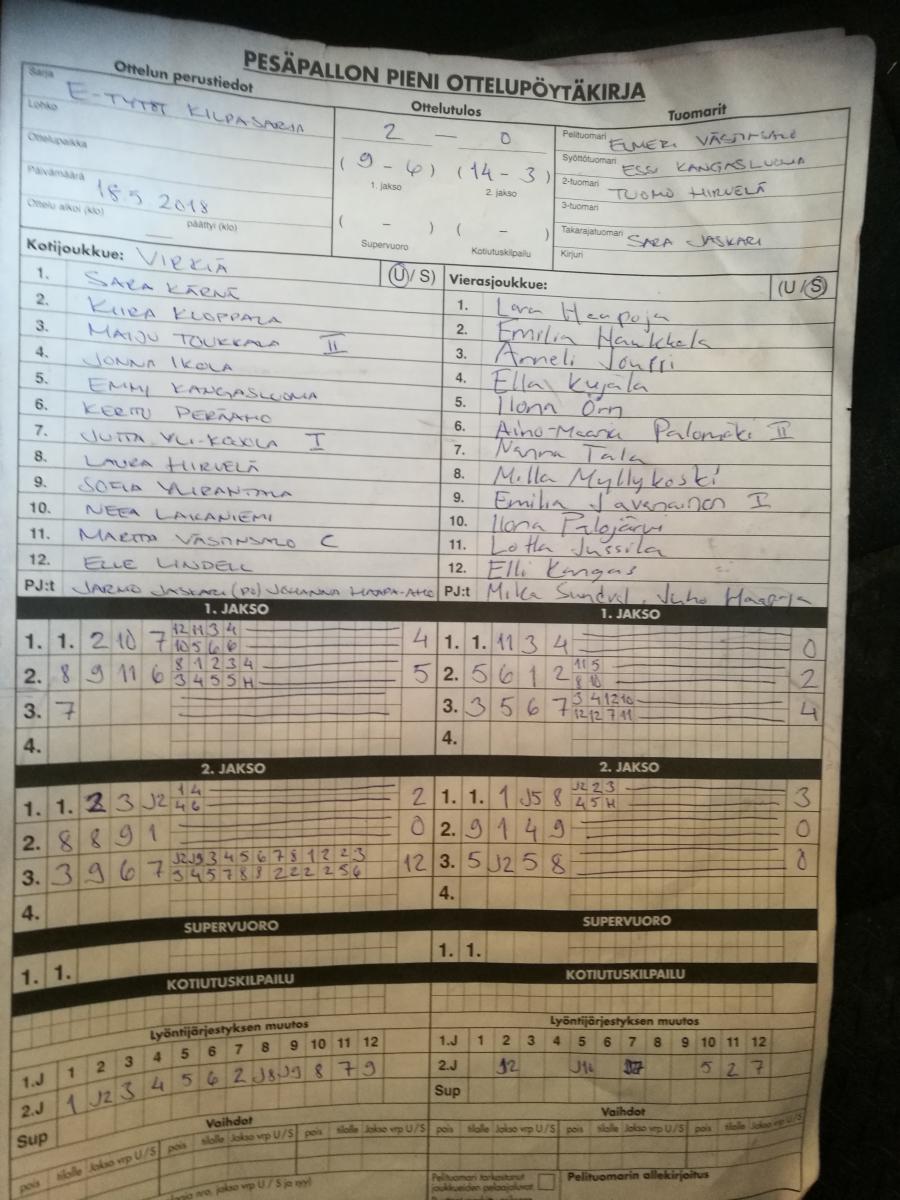 PESÄPALLON PIENI OTTELUPÖYTÄKIRJA
Ottelun perustiedot
Ottelutulos
Tuomarit
Sarja
E-TYTÖT KILPASARJA
Lohko
Ottelupaikka
Päivämäärä
18.5.2018
Ottelu alkoi (klo)
päättyi (klo)
2 — 0
(9 - 6) (14 - 3)
1. jakso 2. jakso
( - ) ( - )
Supervuoro Kotiutuskilpailu
Pelituomari ELMERI
Syöttötuomari ESSI KANGASLUOMA
2-tuomari TUOMO HIRVELÄ
3-tuomari
Takarajatuomari SARA JASKARI
Kirjuri
Kotijoukkue: VIRKIÄ (U / S)
1. SARA KÄRNÄ
2. KIIRA KLOPPALA
3. MAIJU TOUKKALA II
4. JONNA IKOLA
5. EMMI KANGASLUOMA
6. KERTTU PERÄAHO
7. JUTTA YLI-KOKKILA I
8. LAURA HIRVELÄ
9. SOFIA YLIRANTALA
10. NEEA LAKANIEMI
11. MARTTA VÄSTINSALO C
12. ELLE LINDELL
PJ:t JARMO JASKARI (PJ) JOHANNA HAAPA-AHO
Vierasjoukkue: (U / S)
1. Lara Haapoja
2. Emilia Haukkala
3. Anneli Jouppi
4. Ella Kujala
5. Ilona Örn
6. Aino-Maaria Palomäki II
7. Nanna Tala
8. Milla Myllykoski
9. Emilia Javanainen I
10. Ilona Palojärvi
11. Lotta Jussila
12. Elli Kangas
PJ:t Mika Sundval, Juho Haapoja
1. JAKSO
1. 1. 2 10 7 12 11 3 4 4
10 5 6 6
2. 8 9 11 6 8 1 2 3 4 5
3 4 5 5 H
3. 7
4.
1. JAKSO
1. 1. 11 3 4 0
2. 5 6 1 2 11 5 2
8 10
3. 3 5 6 7 3 4 12 10 4
12 12 7 11
4.
2. JAKSO
1. 1. 2 3 J2 1 4 2
4 6
2. 8 8 9 1 0
3. 3 9 6 7 J2 J9 3 4 5 6 7 8 1 2 2 3 12
3 4 5 7 8 8 2 2 2 2 5 6
4.
2. JAKSO
1. 1. 1 J5 8 J2 2 3 3
4 5 H
2. 9 1 4 9 0
3. 5 J2 5 8 0
4.
SUPERVUORO
1. 1.
SUPERVUORO
1. 1.
KOTIUTUSKILPAILU
KOTIUTUSKILPAILU
Lyöntijärjestyksen muutos
1.J 1 2 3 4 5 6 7 8 9 10 11 12
2.J 1 J2 3 4 5 6 2 J8 J9 8 7 9
Sup
Lyöntijärjestyksen muutos
1.J 1 2 3 4 5 6 7 8 9 10 11 12
2.J 5 2 7
Sup
Vaihdot
pois tilalle Jakso vrp U / S pois tilalle Jakso vrp U / S pois tilalle Jakso vrp U / S
Vaihdot
pois tilalle Jakso vrp U / S pois tilalle Jakso vrp U / S pois tilalle Jakso vrp U / S
nro, jakso vrp U / S ja syy)
Pelituomari tarkastanut
joukkueiden pelaajaluvat
Pelituomarin allekirjoitus